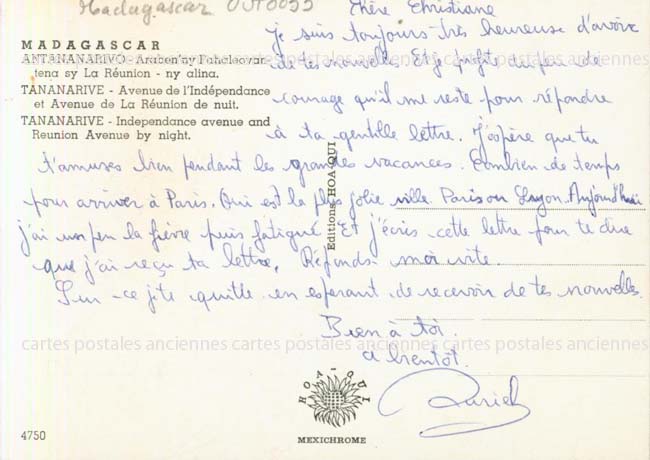 Madagascar
MADAGASCAR
ANTANANARIVO - Araben'ny Fahaleovan-
tena sy La Réunion - ny alina.
TANANARIVE - Avenue de l'Indépendance
et Avenue de La Réunion de nuit.
TANANARIVE - Independance avenue and
Reunion Avenue by night.
Chère Christiane
Je suis toujours très heureuse d'avoir
de tes nouvelles. Et je profite un peu de
courage qu'il me reste pour répondre
à ta gentille lettre. J'espère que tu
t'amuses bien pendant les grandes vacances. Combien de temps
pour arriver à Paris. Qui est la plus jolie ville Paris ou Lyon. Aujourd'hui
j'ai un peu la fièvre puis fatigué. Et j'écris cette lettre pour te dire
que j'ai reçu ta lettre. Réponds moi vite.
Sur ce je te quitte en esperant de recevoir de tes nouvelles.
Bien à toi.
a bientôt.
Editions HOA-QUI
cartes postales anciennes cartes postales anciennes cartes postales anciennes
cartes postales anciennes cartes postales anciennes cartes postales anciennes
HOA-QUI
MEXICHROME
4750